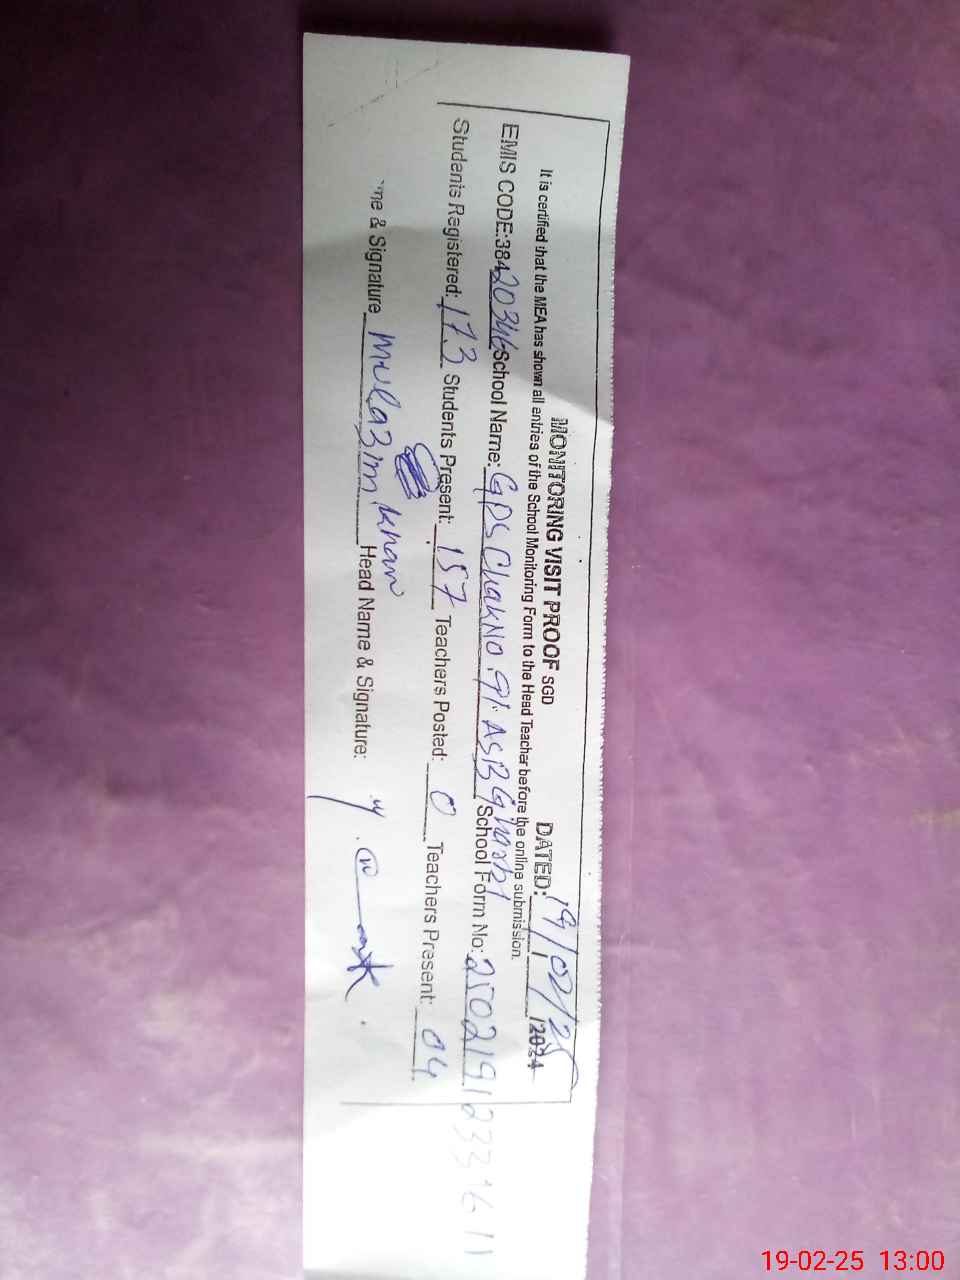 MONITORING VISIT PROOF SGD DATED: 19/02/25 /2024
It is certified that the MEA has shown all entries of the School Monitoring Form to the Head Teacher before the online submission.
EMIS CODE:38420346 School Name: GPS Chak No. 91. ASB Gharbi School Form No: 250219123361
Students Registered: 173 Students Present: 157 Teachers Posted: 0 Teachers Present: 04
me & Signature Mulazim Khan Head Name & Signature:
19-02-25 13:00